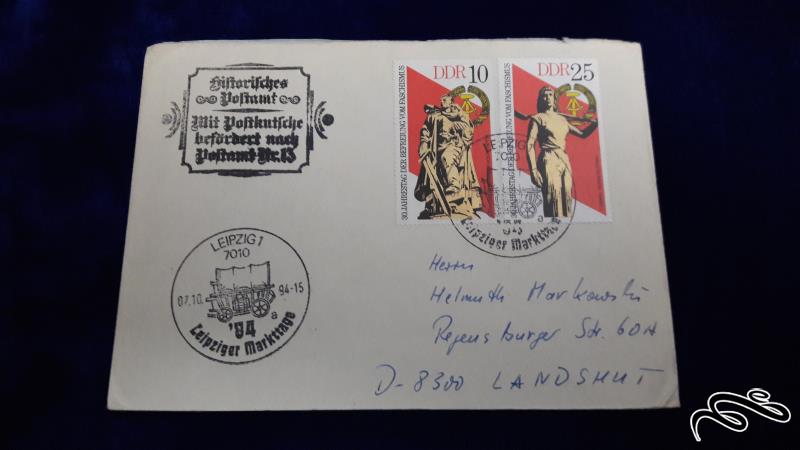 Historisches
Postamt
Mit Postkutsche
befördert nach
Postamt Nr. 13
DDR 10
30. JAHRESTAG DER BEFREIUNG VOM FASCHISMUS
DDR 25
30. JAHRESTAG DER BEFREIUNG VOM FASCHISMUS
LEIPZIG 1
7010
Leipziger Markttage
LEIPZIG 1
7010
07.10. 94-15
a
'84
Leipziger Markttage
Herrn
Helmuth Markowski
Regensburger Str. 60A
D-8300 LANDSHUT